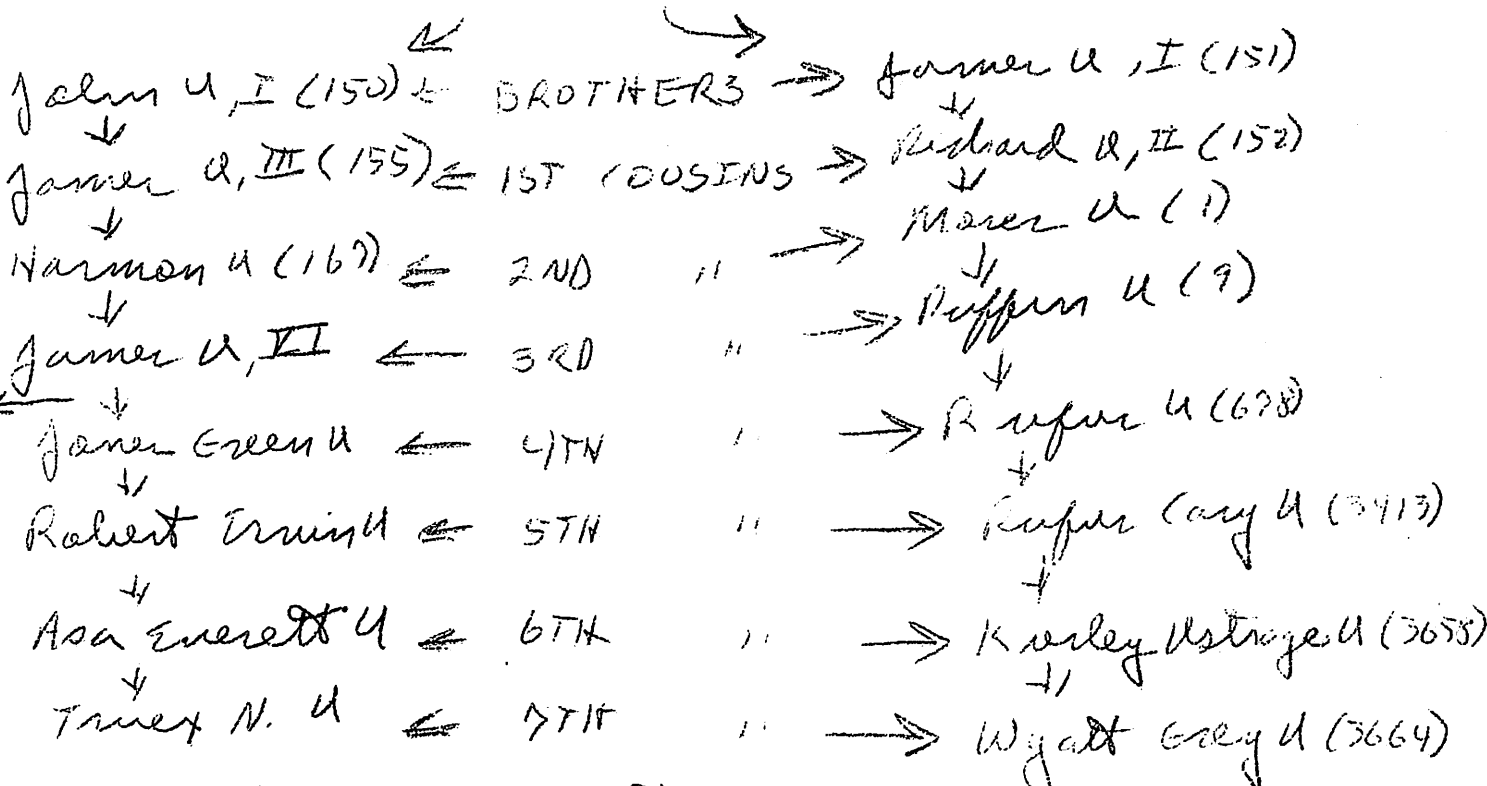 John U, I (150) ← BROTHERS → James U, I (151)
James U, III (155) ← 1ST COUSINS → Richard U, II (152)
Harmon U (163) ← 2ND " → Moses U (1)
James U, VI ← 3RD " → Ruffin U (9)
James Green U ← 4TH " → Rufus U (678)
Robert Irwin U ← 5TH " → Rufus Cary U (3413)
Asa Everett U ← 6TH " → U (3658)
Truex N. U ← 7TH " → Wyatt Grey U (3664)